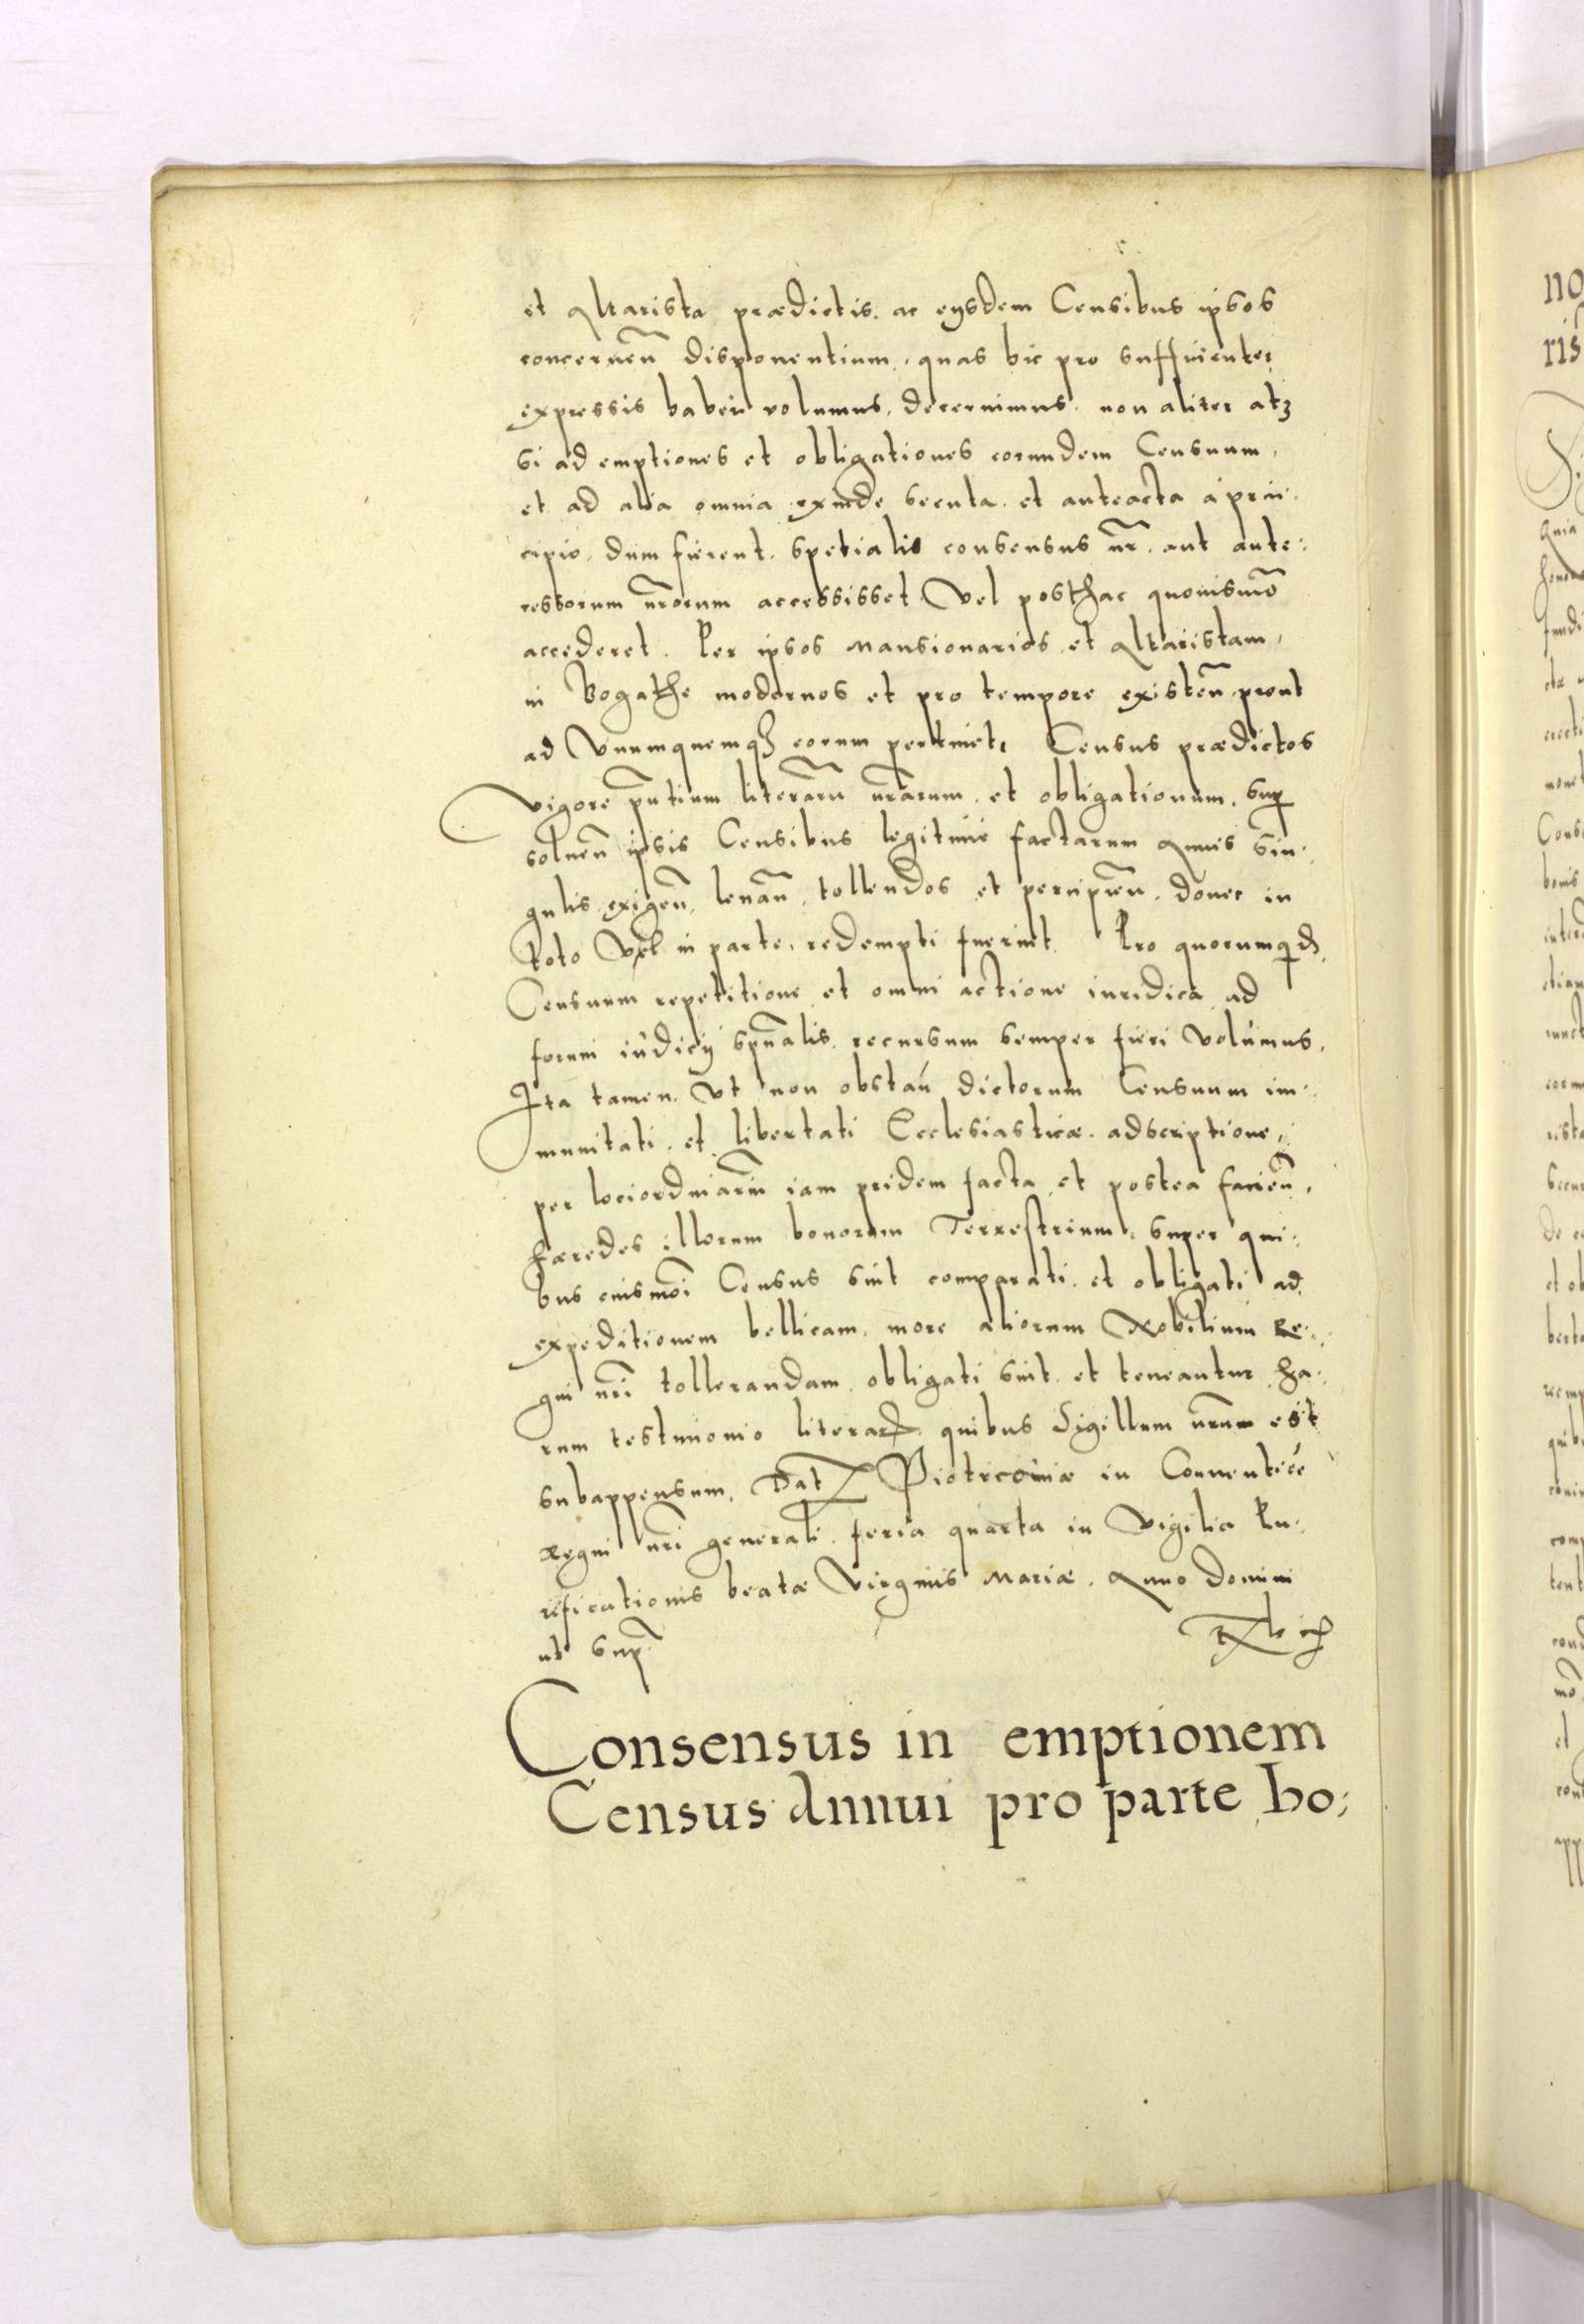 et Altarista prædictis. ac eijsdem Censibus ipsos
concernen̄ disponentium, quas hic pro sufficienter
expressis haberi volumus, decernimus. non aliter atqꝫ
si ad emptiones et obligationes eorundem Censuum,
et ad alia omnia exinde secuta. et anteacta á prin:
cipio, dum fierent. spetialis consensus nr̄. aut ante:
cessorum nr̄orum accessisset Vel posthac quouismō
accederet. Per ipsos Mansionarios et Altaristam,
in Bogathe modernos et pro tempore existen̄ prout
ad Vnumquemqꝫ eorum pertinet, Census prædictos
Vigore pn̄tium literarū nr̄arum. et obligationum. sup
soluen̄ ipsis Censibus legitimè factarum Annis sin:
gulis exigen̄, leuan̄, tollendos et percipien̄. donec in
toto Vel in parte, redempti fuerint. Pro quorumqđ
Censuum repetitione et omni actione iuridica ad
forum iudicij spūalis. recursum semper fieri Volumus.
Ita tamen Vt non obstan̄ dictorum Censuum im:
munitati. et libertati Ecclesiasticæ. adscriptione,
per lociordinariū iam pridem facta et postea facien̄.
hæredes illorum bonorum Terrestrium, super qui:
bus eiusmōi Census sint comparati. et obligati ad
expeditionem bellicam. more aliorum Nobilium Re:
gni nr̄i tollerandam. obligati sint et teneantur. ha:
rum testimonio literarꝫ quibus Sigillum nr̄um est
subappensum. Dat Piotrcouiæ in Conuentioē
Regni nr̄i generali. feria quarta in Vigilia Pu:
rificationis beatæ Virginis Mariæ. Anno Domini
ut sup̄
Consensus in emptionem
Census Annui pro parte bo: